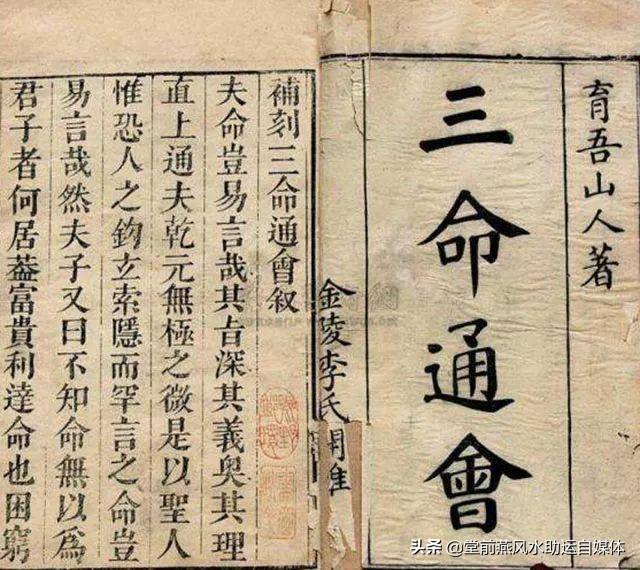 育吾山人著
三命通會
金陵李氏
補刻三命通會叙
夫命豈易言哉其旨深其義奧其理
直上通夫乾元無極之微是以聖人
惟恐人之鉤玄索隱而罕言之命豈
易言哉然夫子又曰不知命無以爲
君子者何居葢富貴利達命也困窮
头条 @堂前燕风水助运自媒体